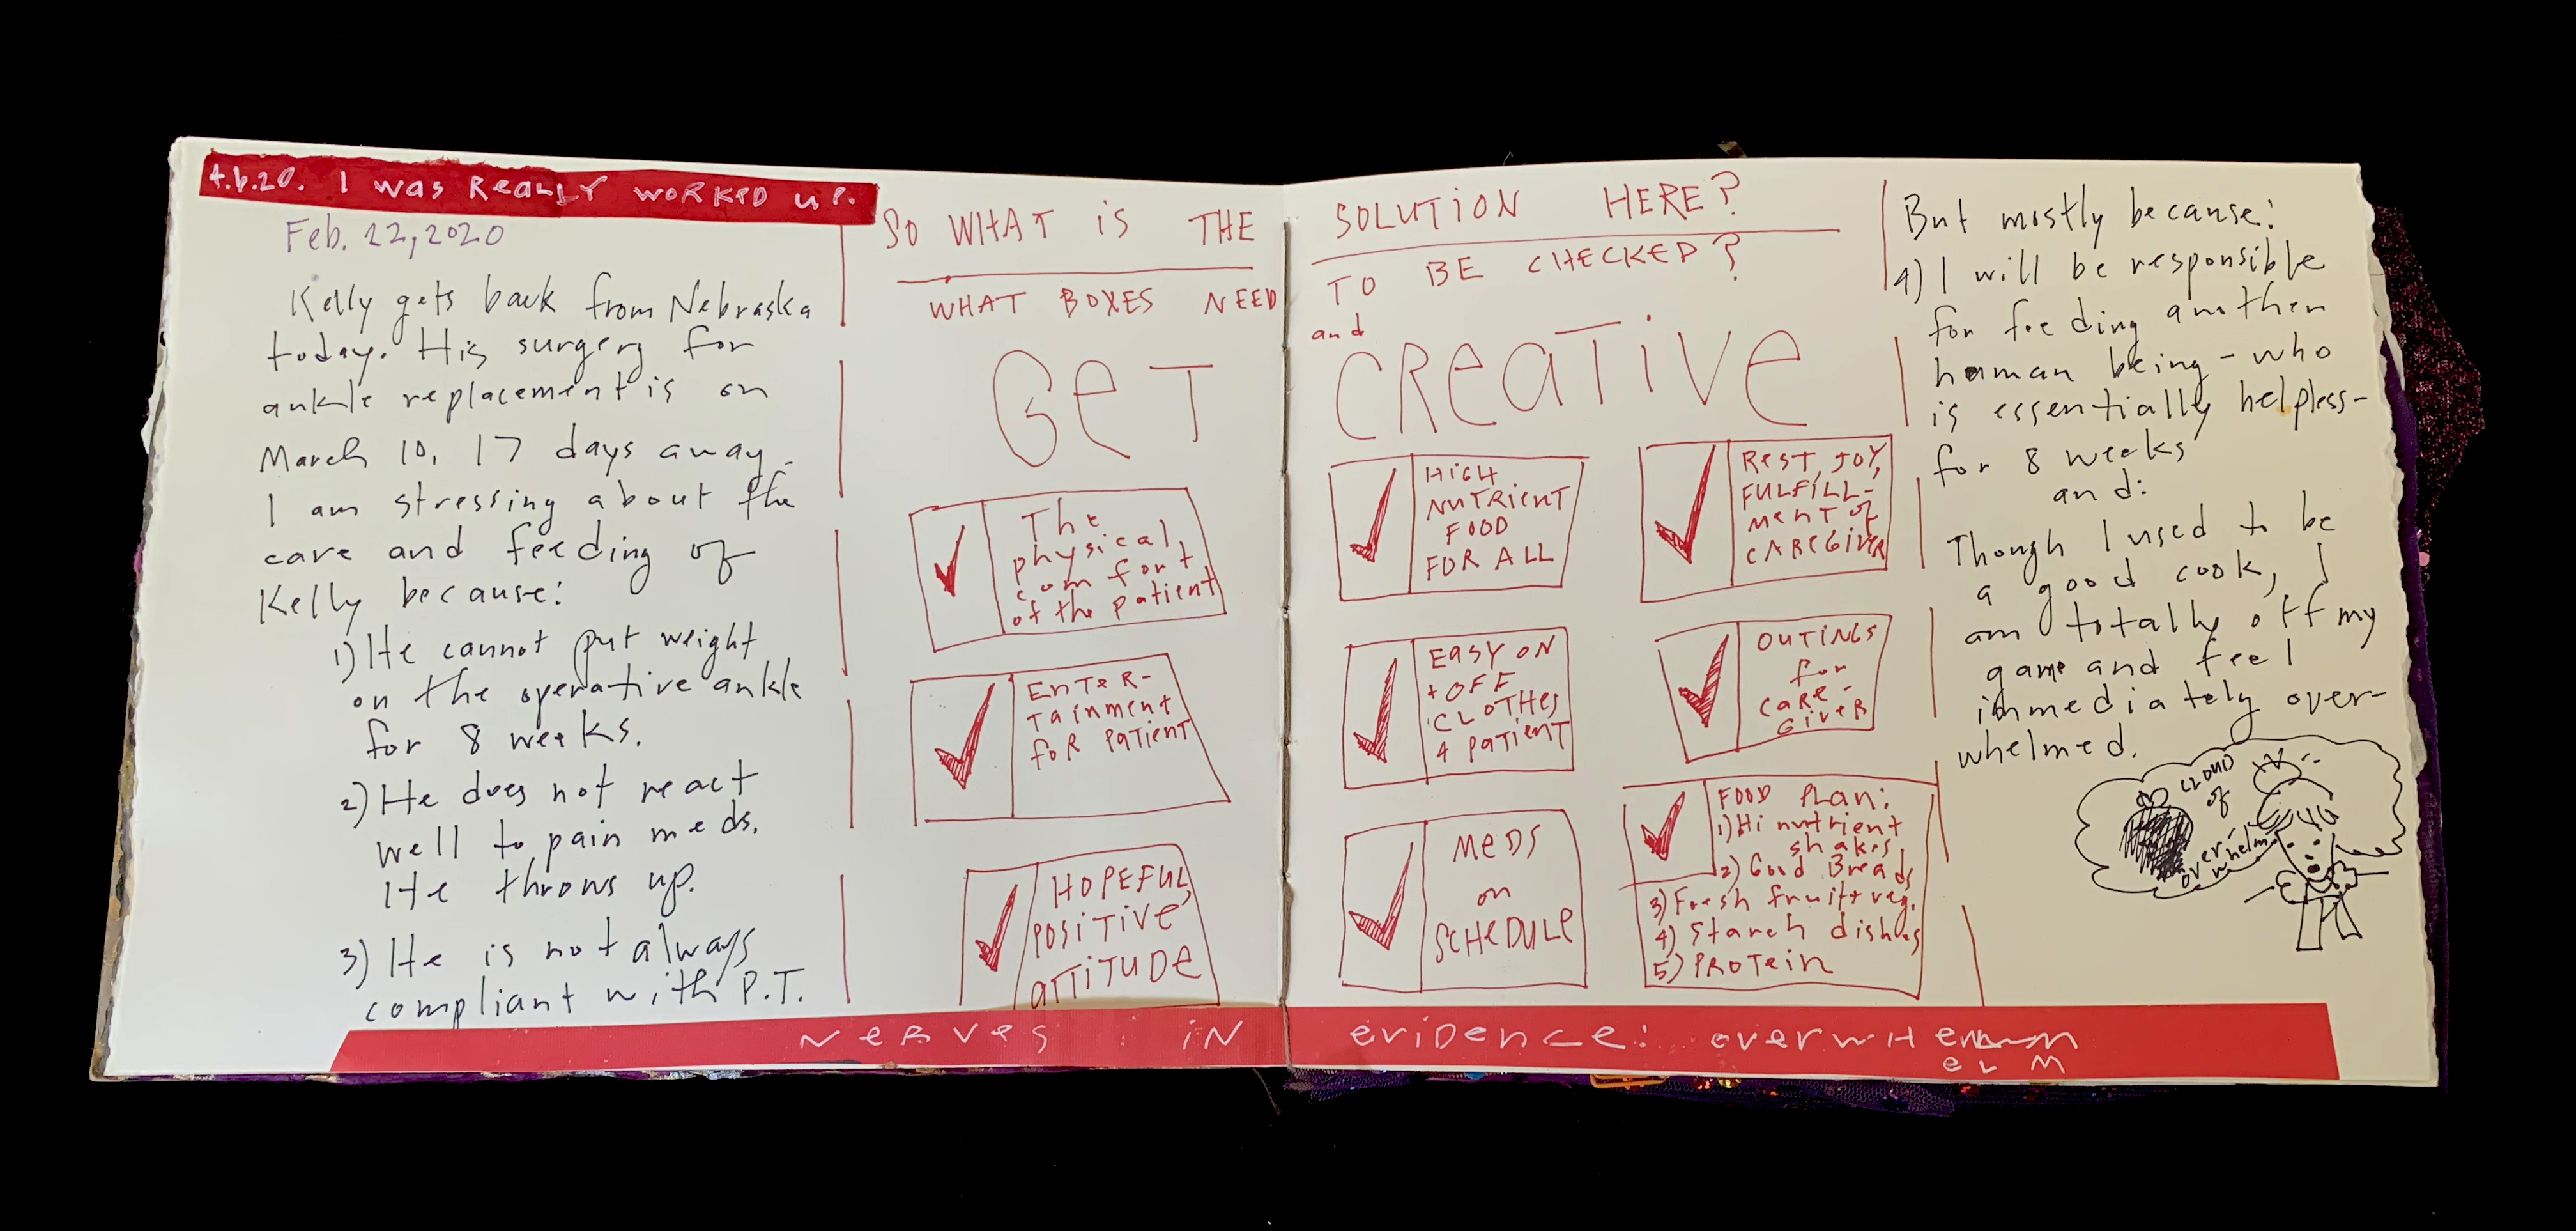 4.6.20. I WAS REALLY WORKED UP.
Feb. 22, 2020
Kelly gets back from Nebraska
today. His surgery for
ankle replacement is on
March 10, 17 days away.
I am stressing about the
care and feeding of
Kelly because:
1) He cannot put weight
on the operative ankle
for 8 weeks.
2) He does not react
well to pain meds.
He throws up.
3) He is not always
compliant with P.T.
SO WHAT iS THE SOLUTiON HERE?
WHAT BOXES NEED TO BE CHECKED?
and
GET CREATIVE
The
physical
comfort
of the patient
ENTER-
TAINMENT
FOR PATIENT
HOPEFUL,
POSITIVE
ATTITUDE
HIGH
NUTRIENT
FOOD
FOR ALL
EASY ON
+ OFF
CLOTHES
4 PATIENT
MEDS
on
SCHEDULE
REST, JOY,
FULFILL-
MENT of
CAREGIVER
OUTINGS
for
CARE-
GIVER
FOOD PLAN:
1) Hi nutrient
shakes
2) Good Breads
3) Fresh fruit + veg.
4) Starch dishes
5) PROTEIN
But mostly because:
4) I will be responsible
for feeding another
human being - who
is essentially helpless -
for 8 weeks
and:
Though I used to be
a good cook, I
am totally off my
game and feel
immediately over-
whelmed.
CLOUD
of
over-
whelm
NERVES : IN EVIDENCE: OVERWH
ELM